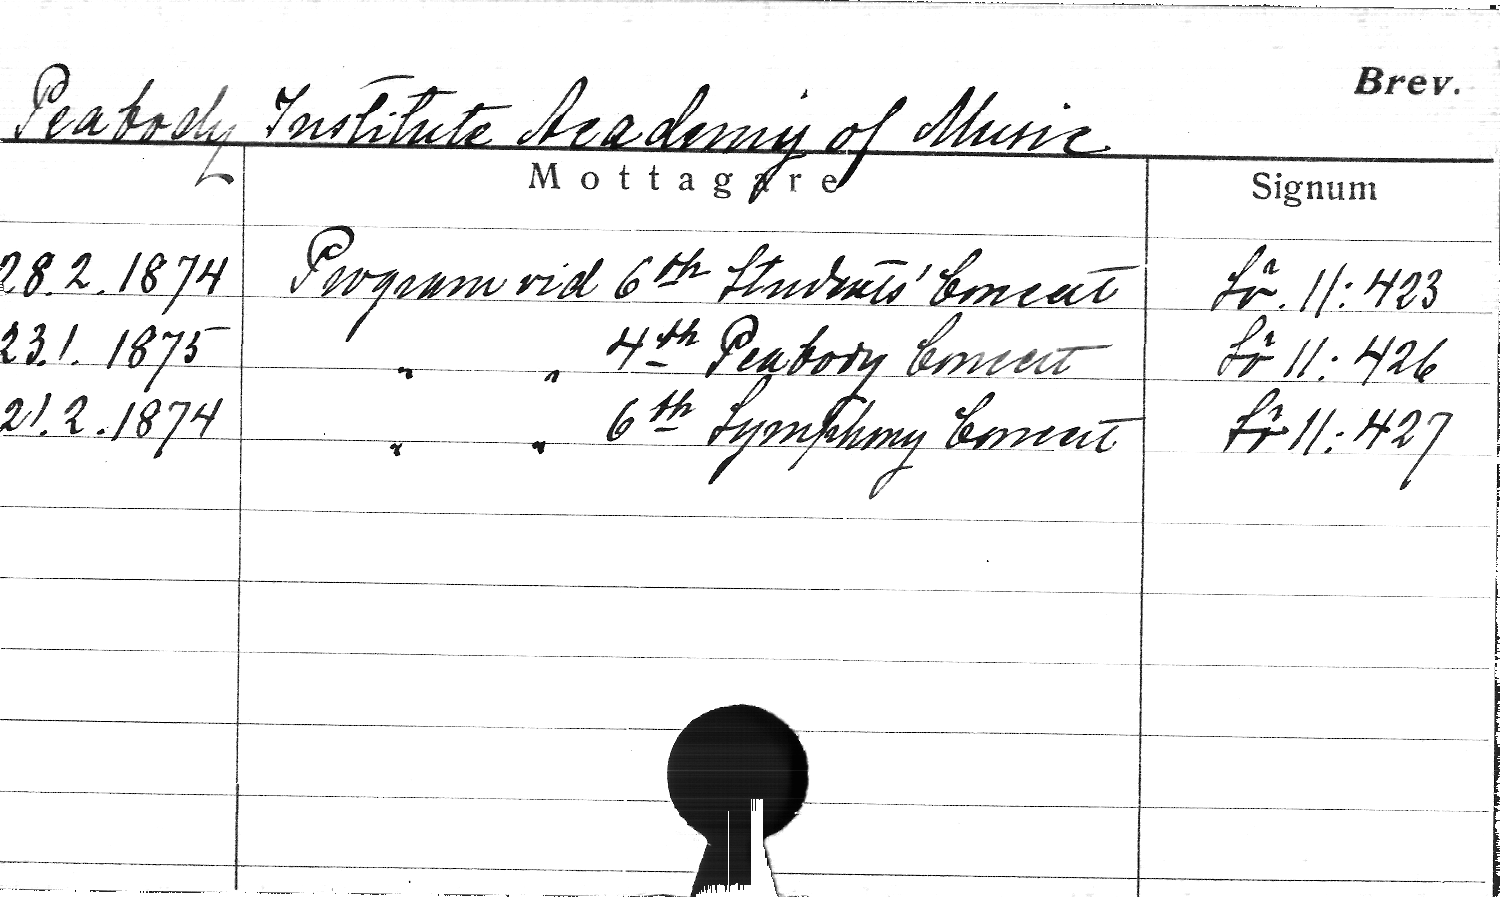 Brev.
Peabody Institute Academy of Music
Mottagare Signum
28.2.1874 Program vid 6th Students' Concert 11:423
23.1.1875 „ „ 4th Peabody Concert 11:426
21.2.1874 „ „ 6th Symphony Concert 11:427